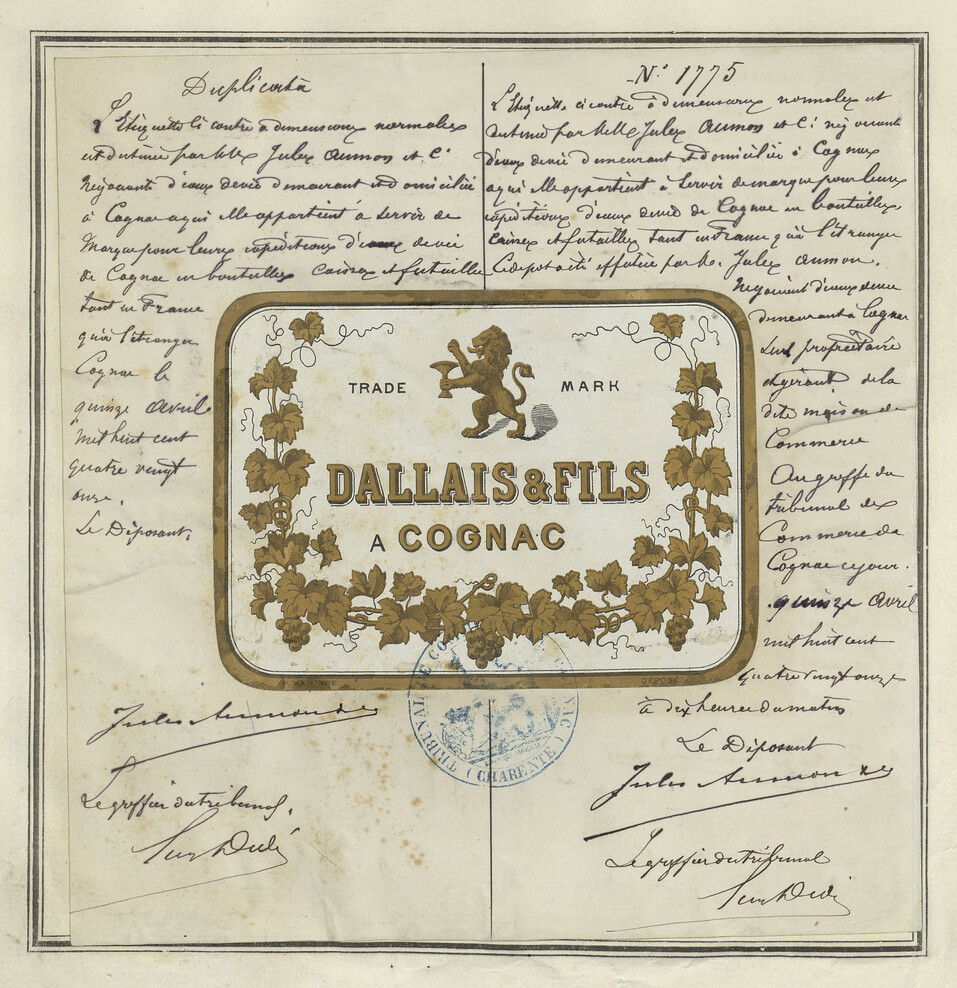 Duplicata
L'Etiquette ci contre à dimensions normales
est destinée par MM Jules Aumon et Cie
Négociants d'eaux devie demeurant et domiciliés
à Cognac a qui elle appartient à servir de
Marque pour leurs expéditions d'eaux de vie
de Cognac en bouteilles caisses et futailles
tant en France
qu'à l'étranger
Cognac le
quinze Avril
mil huit cent
quatre vingt
onze.
Le Déposant;
Jules Aumon & Cie
Le greffier du tribunal.
N° 1775
L'Etiquette ci contre à dimensions normales est
destinée par MM Jules Aumon et Cie négociants
d'eaux devie demeurant et domiciliés à Cognac
a qui elle appartient à servir de marque pour leurs
expéditions d'eaux devie de Cognac en bouteilles,
caisses et futailles tant en France qu'à l'étranger
Ce depot a été effectué par M. Jules Aumon.
Négociant d'eaux devie
demeurant à Cognac
seul propriétaire
et gérant de la
dite maison de
Commerce
Au greffe du
tribunal de
Commerce de
Cognac ce jour.
quinze Avril
mil huit cent
quatre vingt onze
à dix heures du matin
Le Déposant
Jules Aumon & Cie
Le greffier du tribunal
TRADE MARK
DALLAIS & FILS
A COGNAC
DÉPOSÉ
TRIBUNAL DE COMMERCE COGNAC (CHARENTE)